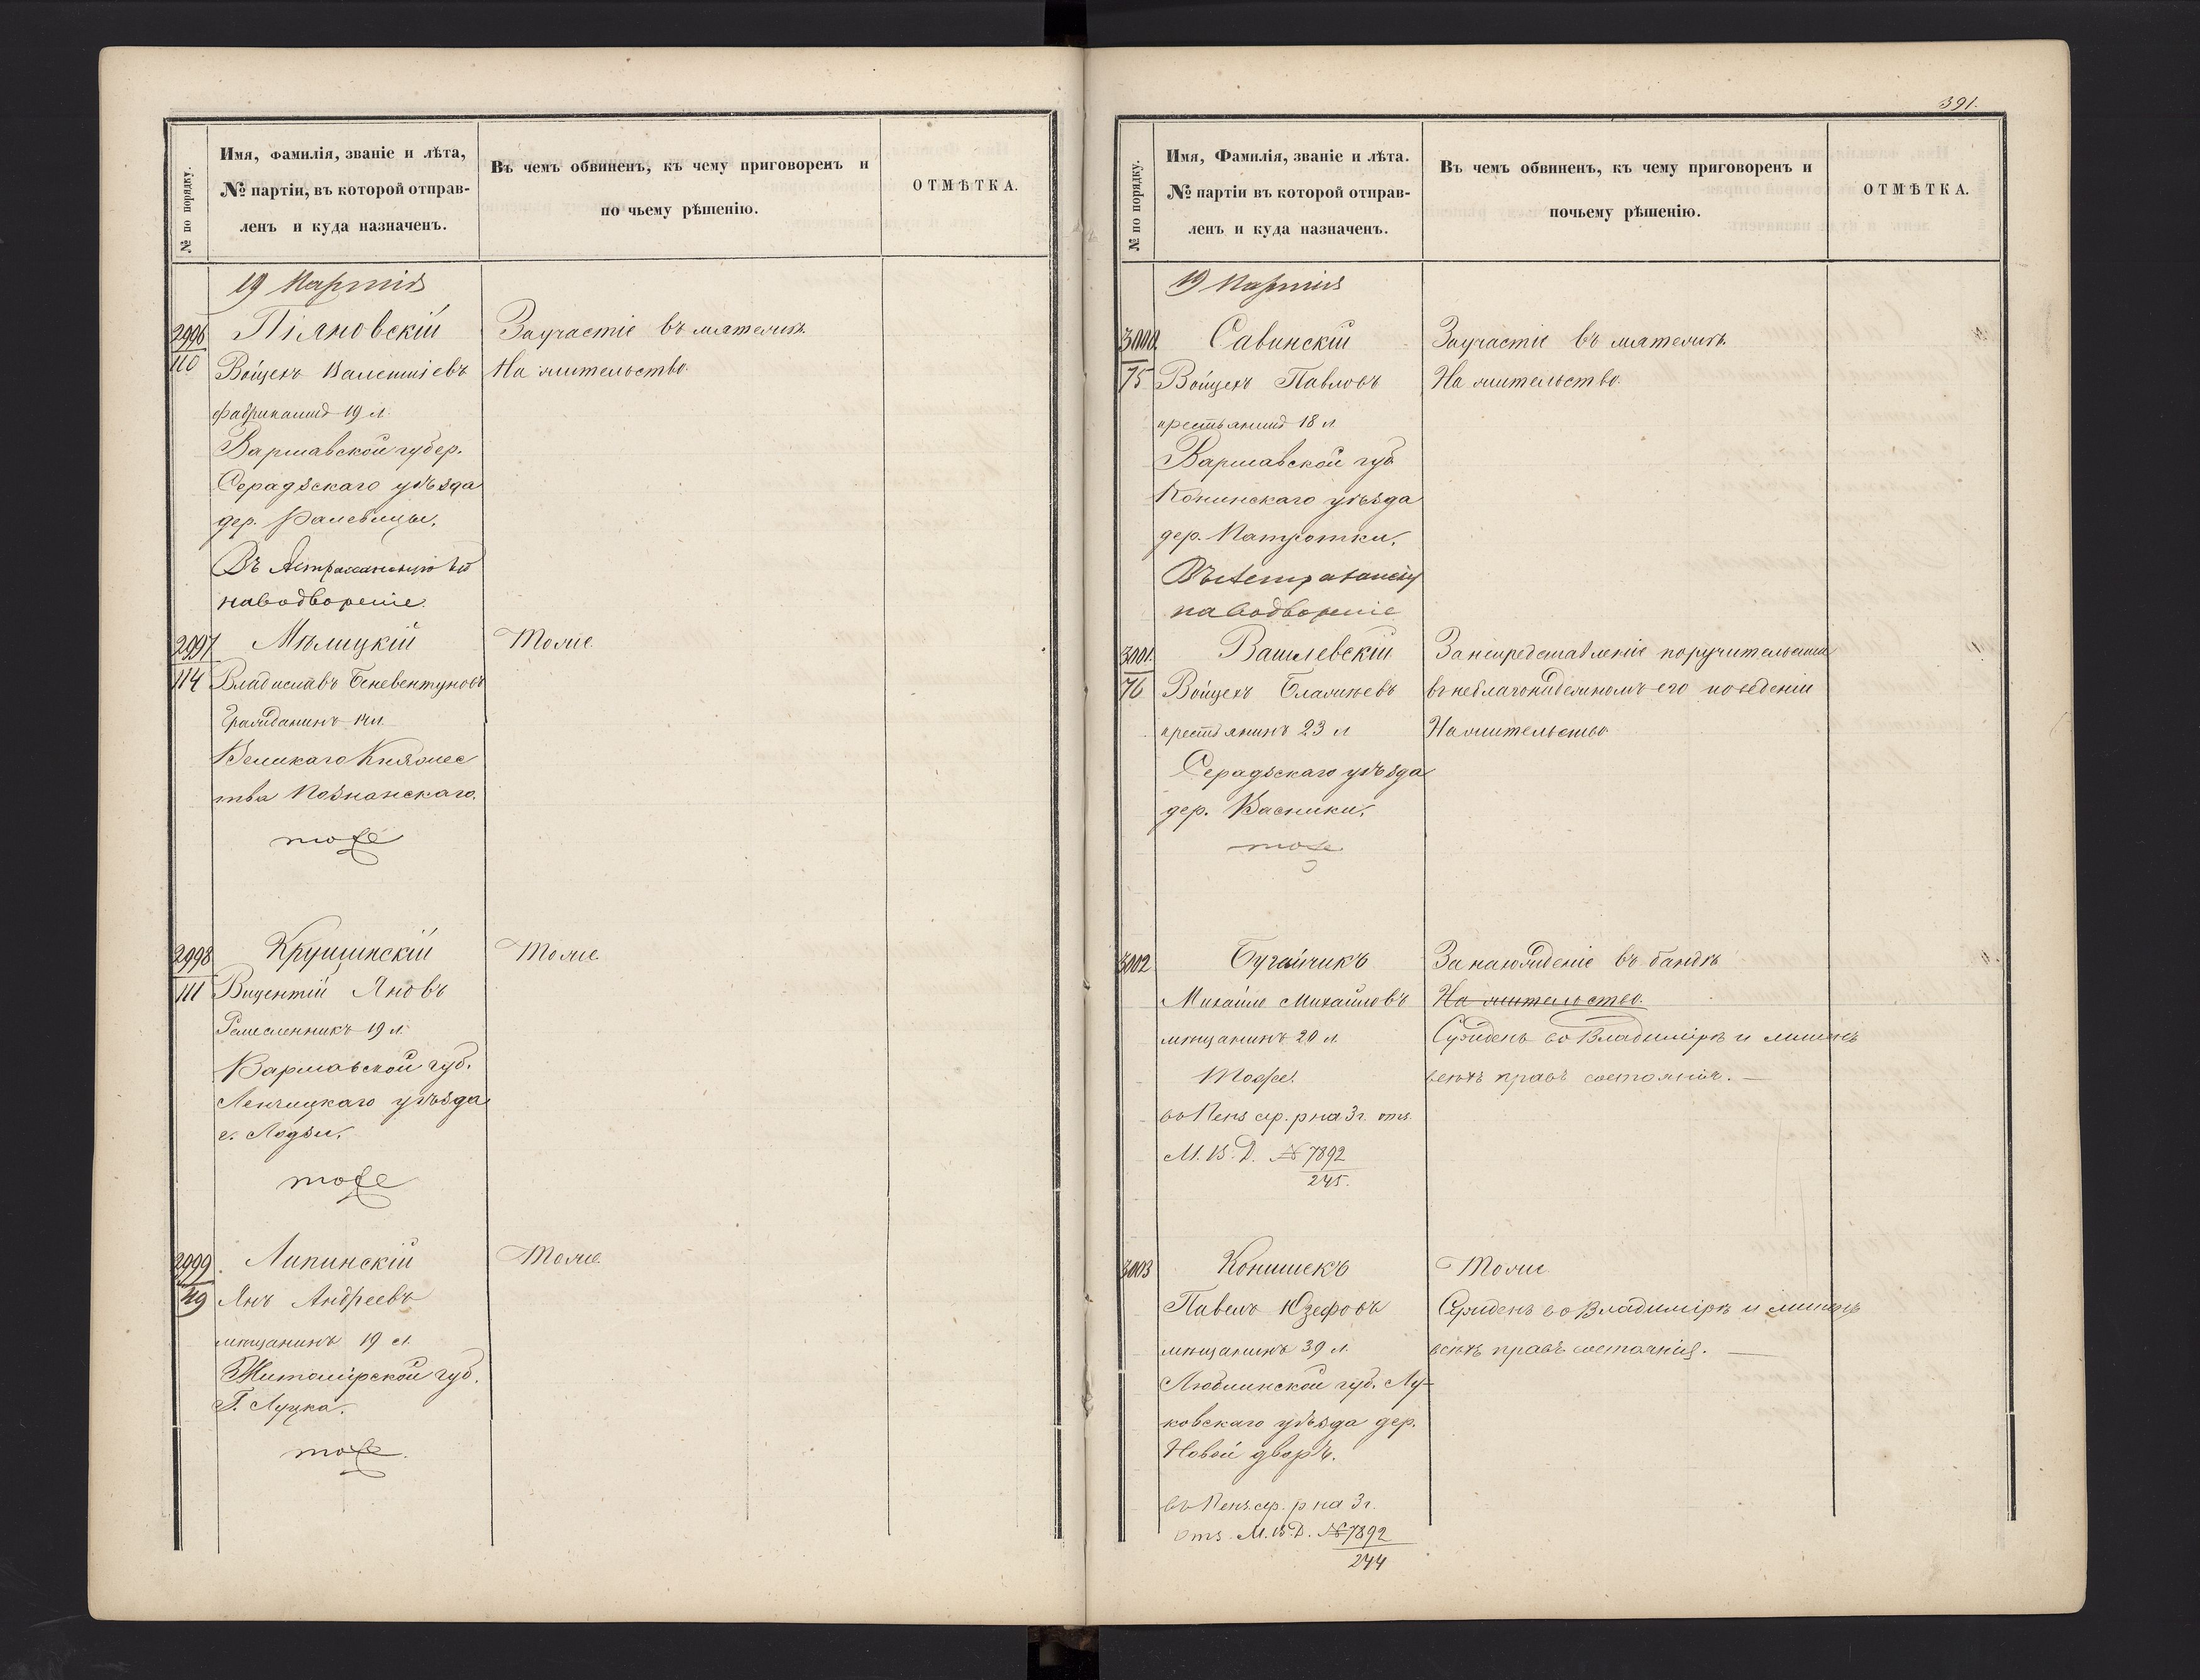 № по порядку.
Имя, фамилія, званіе и лѣта,
№ партіи, въ которой отправ-
ленъ и куда назначенъ.
Въ чемъ обвиненъ, къ чему приговоренъ и
по чьему рѣшенію.
ОТМѢТКА.
19 Партія
2996
110
Піяновскій
Войцехъ Валентіевъ
фабрикантъ 19 л.
Варшавской губер.
Серадзскаго уѣзда
дер. Валевицы.
Въ Астраханскую
на водвореніе.
За участіе въ мятежѣ
На жительство.
2997
114
Мѣлицкій
Владиславъ Беневентуновъ
Гражданинъ л.
Великаго Княжес
тва Познанскаго.
тоже
Тоже.
2998
111
Крушинскій
Вицентій Яновъ
Ремесленникъ 19 л.
Варшавской губ.
Ленчицкаго уѣзда
г. Лодзи.
тоже
Тоже
2999
Липинскій
Янъ Андреевъ
мѣщанинъ 19 л.
Житомірской губ.
Г. Луцка.
тоже.
Тоже.
391.
№ по порядку.
Имя, Фамилія, званіе и лѣта.
№ партіи въ которой отправ-
ленъ и куда назначенъ.
Въ чемъ обвиненъ, къ чему приговоренъ и
почьему рѣшенію.
ОТМѢТКА.
19 Партія
3000.
75
Савинскій
Войцехъ Павловъ
крестьянинъ 18 л.
Варшавской губ
Конинскаго уѣзда
дер. Патротки.
Въ Астраханску
на водвореніе
За участіе въ мятежѣ.
На жительство.
3001.
76
Вашлевскій
Войцехъ Блажѣевъ
крестьянинъ 23 л
Серадзскаго уѣзда
дер. Васники.
тоже
За непредставленіе поручительства
въ неблагонадежномъ его поведеніи
На жительство
3002
Бугайчикъ
Михайло Михайловъ
мѣщанинъ 20 л.
Тоже.
во Пенз ар. р на 3 г. отз.
М. В. Д. № 7892
245.
За нахожденіе въ бандѣ
На жительство.
Сужденъ во Владимірѣ и лишенъ
всѣхъ правъ состоянія. —
3003
Конишекъ
Павелъ Юзефовъ
мѣщанинъ 39 л.
Люблинской губ. Лу-
ковскаго уѣзда дер.
Новой дворъ.
въ Пенз. ар. р на 3 г.
отз. М. В. Д. № 7892
244
Тоже
Сужденъ во Владимірѣ и лишенъ
всѣхъ правъ состоянія. —